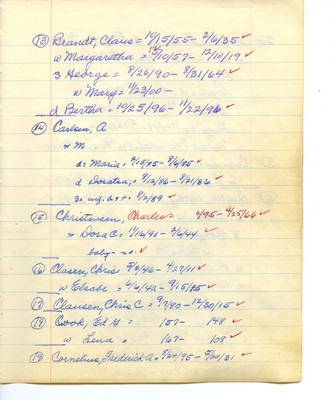 (13) Brandt, Claus = 10/15/55 - 2/6/35 ✓
w Margaretha = 10/10/57 - 12/10/19 ✓
s George = 8/26/90 - 8/31/64 ✓
w Mary = 11/23/00 -
d Bertha = 10/25/96 - 11/22/96 ✓
(14) Carlsen, A
w M
d = Maria = 9/15/85 - 9/6/85 ✓
d Doratea, = 9/12/86 - 9/21/86 ✓
9/2/89 ✓
(15) Christensen, Charles = 2/95 - 4/25/66 ✓
w Dora C = 11/16/91 - 2/6/44 ✓
baby -
(16) Clasen, Chris 5/8/46 - 4/27/11 ✓
w Elsabe = 6/6/42 - 9/15/25 ✓
(17) Clausen, Chris C = 9/7/80 - 12/30/15 ✓
(18) Cook, Ed W = 157 - 148 ✓
w Lena = 167 - 108 ✓
(19) Cornelius, Frederick A = 9/24/95 - 5/20/31 ✓